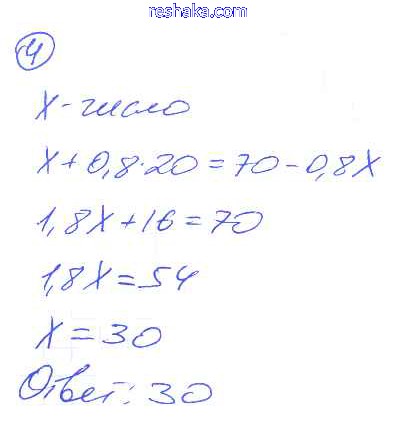 reshaka.com
4
x - число
x + 0,8 · 20 = 70 - 0,8x
1,8x + 16 = 70
1,8x = 54
x = 30
Ответ: 30